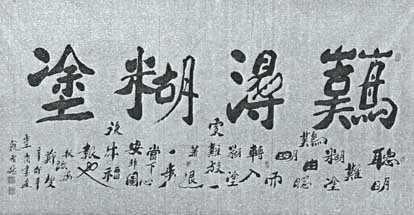 難得糊塗
聰明
難
糊塗
難由聰
明而
轉入
糊塗
更難放一
著退
一步
當下心
安非圖
後来福
報也
鄭燮
辛卯年